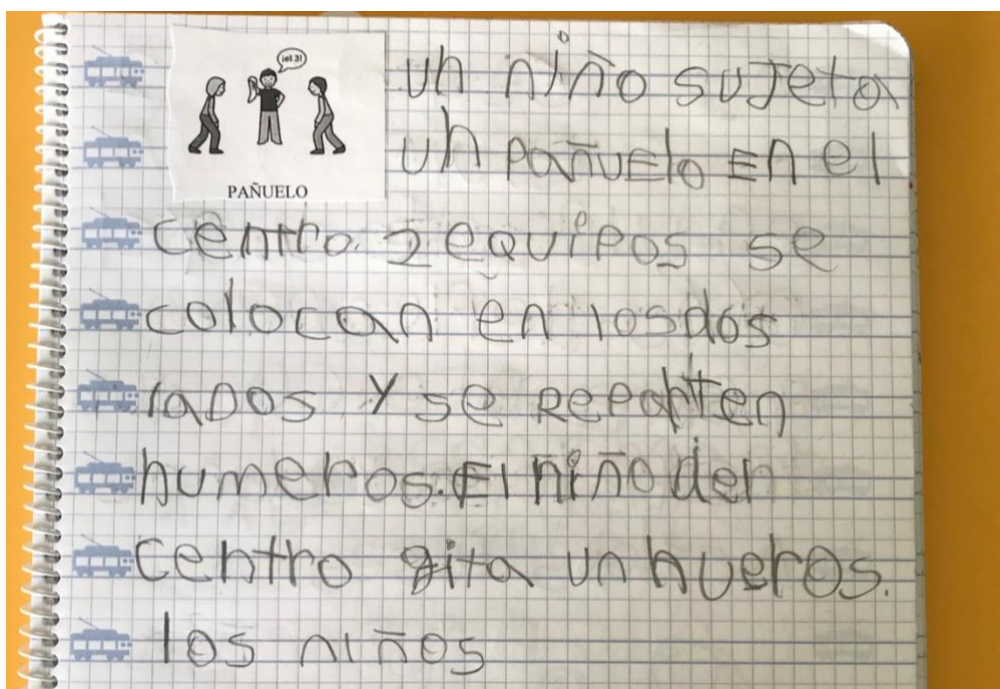 ¡el 3!
PAÑUELO
un niño sujeta
un pañuElo En el
centro. 2 equipos se
colocan en losdos
laDos Y se REpahten
humeros. El niño del
centro gita un hueros.
los niños